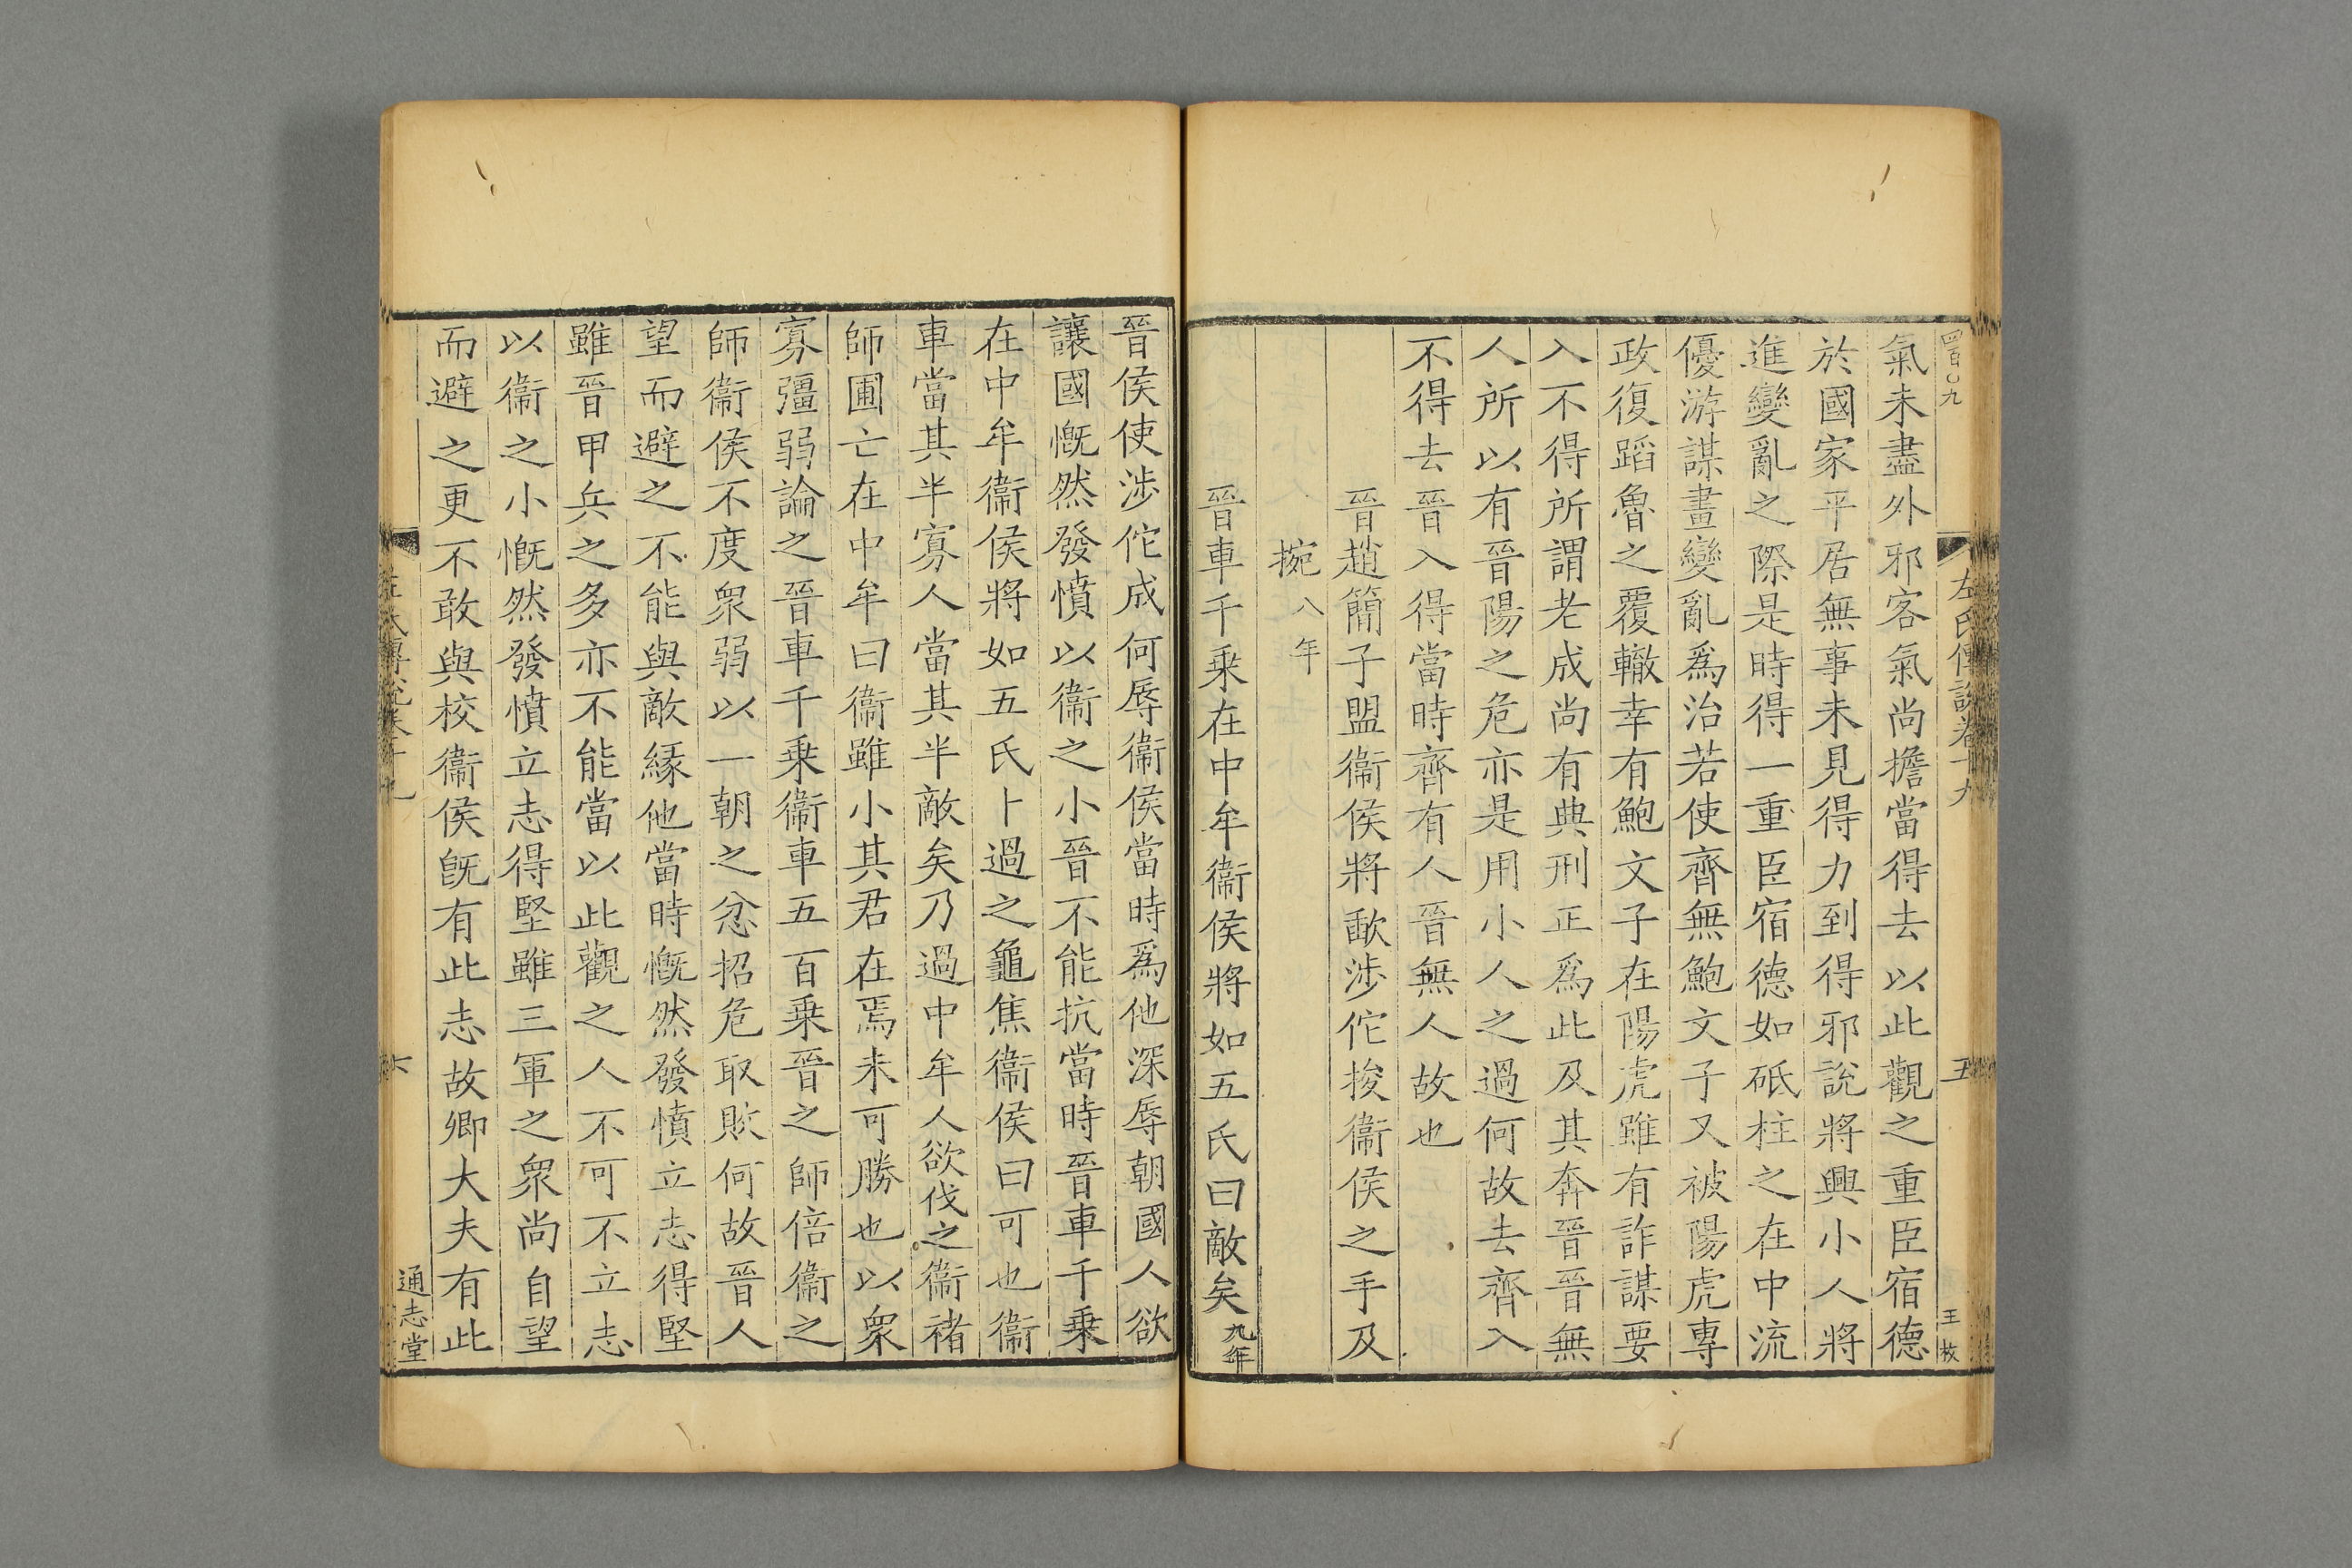 四百〇九
左氏傳說卷十九
五
王枚
氣未盡外邪客氣尚擔當得去以此觀之重臣宿德
於國家平居無事未見得力到得邪說將興小人將
進變亂之際是時得一重臣宿德如砥柱之在中流
優游謀畫變亂爲治若使齊無鮑文子又被陽虎專
政復蹈魯之覆轍幸有鮑文子在陽虎雖有詐謀要
入不得所謂老成尚有典刑正爲此及其奔晉晉無
人所以有晉陽之危亦是用小人之過何故去齊入
不得去晉入得當時齊有人晉無人故也
晉趙簡子盟衞侯將歃涉佗捘衞侯之手及
捥八年
晉車千乗在中牟衞侯將如五氏曰敵矣九年
晉侯使涉佗成何辱衞侯當時爲他深辱朝國人欲
讓國慨然發憤以衞之小晉不能抗當時晉車千乗
在中牟衞侯將如五氏卜過之龜焦衞侯曰可也衞
車當其半寡人當其半敵矣乃過中牟人欲伐之衞褚
師圃亡在中牟曰衞雖小其君在焉未可勝也以衆
寡彊弱論之晉車千乗衞車五百乗晉之師倍衞之
師衞侯不度衆弱以一朝之忿招危取敗何故晉人
望而避之不能與敵縁他當時慨然發憤立志得堅
雖晉甲兵之多亦不能當以此觀之人不可不立志
以衞之小慨然發憤立志得堅雖三軍之衆尚自望
而避之更不敢與校衞侯旣有此志故卿大夫有此
左氏傳說卷十九
六
通志堂